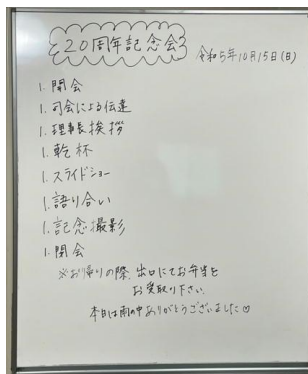 20周年記念会
令和5年10月15日(日)
1. 開会
1. 司会による伝達
1. 理事長挨拶
1. 乾杯
1. スライドショー
1. 語り合い
1. 記念撮影
1. 閉会
※お帰りの際、出口にてお弁当を
お受取り下さい。
本日は雨の中ありがとうございました♡